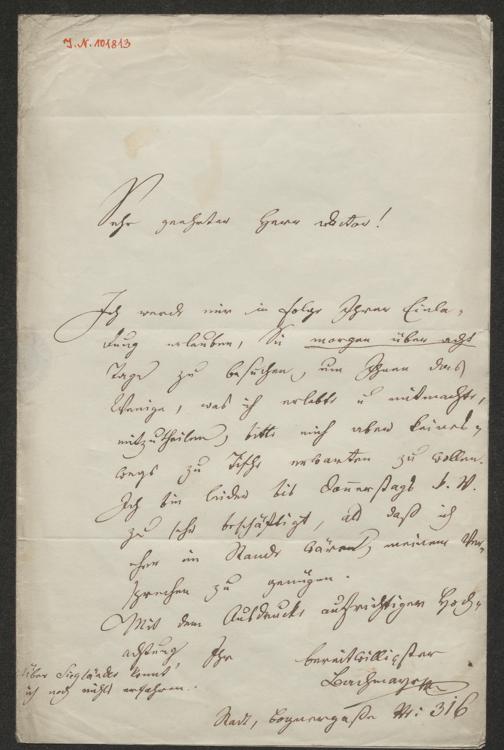 J.N. 101813
Sehr geehrter Herr Doctor!
Ich werde mir in Folge Ihrer Einla-
dung erlauben, Sie morgen über acht
Tage zu besuchen, um Ihnen das
Wenige, was ich erlebte u mitmachte,
mitzutheilen, bitte mich aber keines-
wegs zu Tische erwarten zu wollen.
Ich bin leider bis Donnerstags d. W.
zu sehr beschäftigt, als daß ich
eher im Stande wäre, meinem Ver-
sprechen zu genügen.
Mit dem Ausdrucke aufrichtiger Hoch-
achtung Ihr bereitwilligster
Bachmayr
über konnt'
ich noch nichts erfahren.
Stadt, Bognergasse Nr: 316